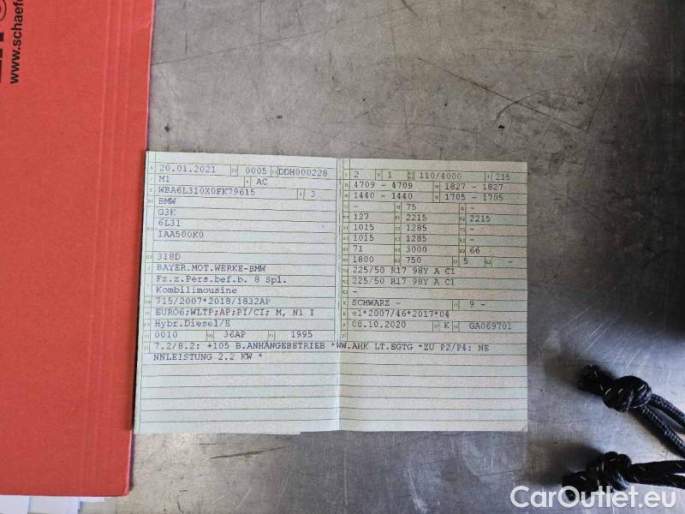 www.schaef
20.01.2021 0005 DDH000228
M1 AC
WBA6L310X0FK79615 3
BMW
G3K
6L31
IAA500K0
318D
BAYER.MOT.WERKE-BMW
Fz.z.Pers.bef.b. 8 Spl.
Kombilimousine
715/2007*2018/1832AP
EURO6;WLTP;AP;PI/CI; M, N1 I
Hybr.Diesel/E
0010 36AP 1995
2 1 110/4000 215
4709 - 4709 1827 - 1827
1440 - 1440 1705 - 1705
- 75 -
127 2215 2215
1015 1285 -
1015 1285 -
71 3000 66
1800 750 5 -
225/50 R17 98Y A C1
225/50 R17 98Y A C1
-
SCHWARZ - 9 -
e1*2007/46*2017*04
08.10.2020 K GA069701
7.2/8.2: +105 B.ANHÄNGEBETRIEB *WW.AHK LT.EGTG *ZU P2/P4: NE
NNLEISTUNG 2.2 KW *
CarOutlet.eu